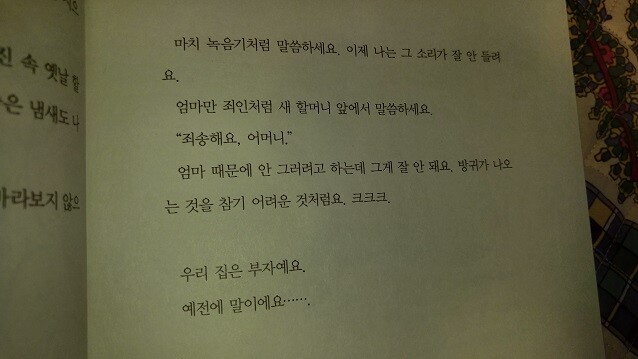 마치 녹음기처럼 말씀하세요. 이제 나는 그 소리가 잘 안 들려
요.
엄마만 죄인처럼 새 할머니 앞에서 말씀하세요.
“죄송해요, 어머니.”
엄마 때문에 안 그러려고 하는데 그게 잘 안 돼요. 방귀가 나오
는 것을 참기 어려운 것처럼요. 크크크.
우리 집은 부자예요.
예전에 말이에요…….
진 속 옛날 할
은 냄새도 나
바라보지 않으